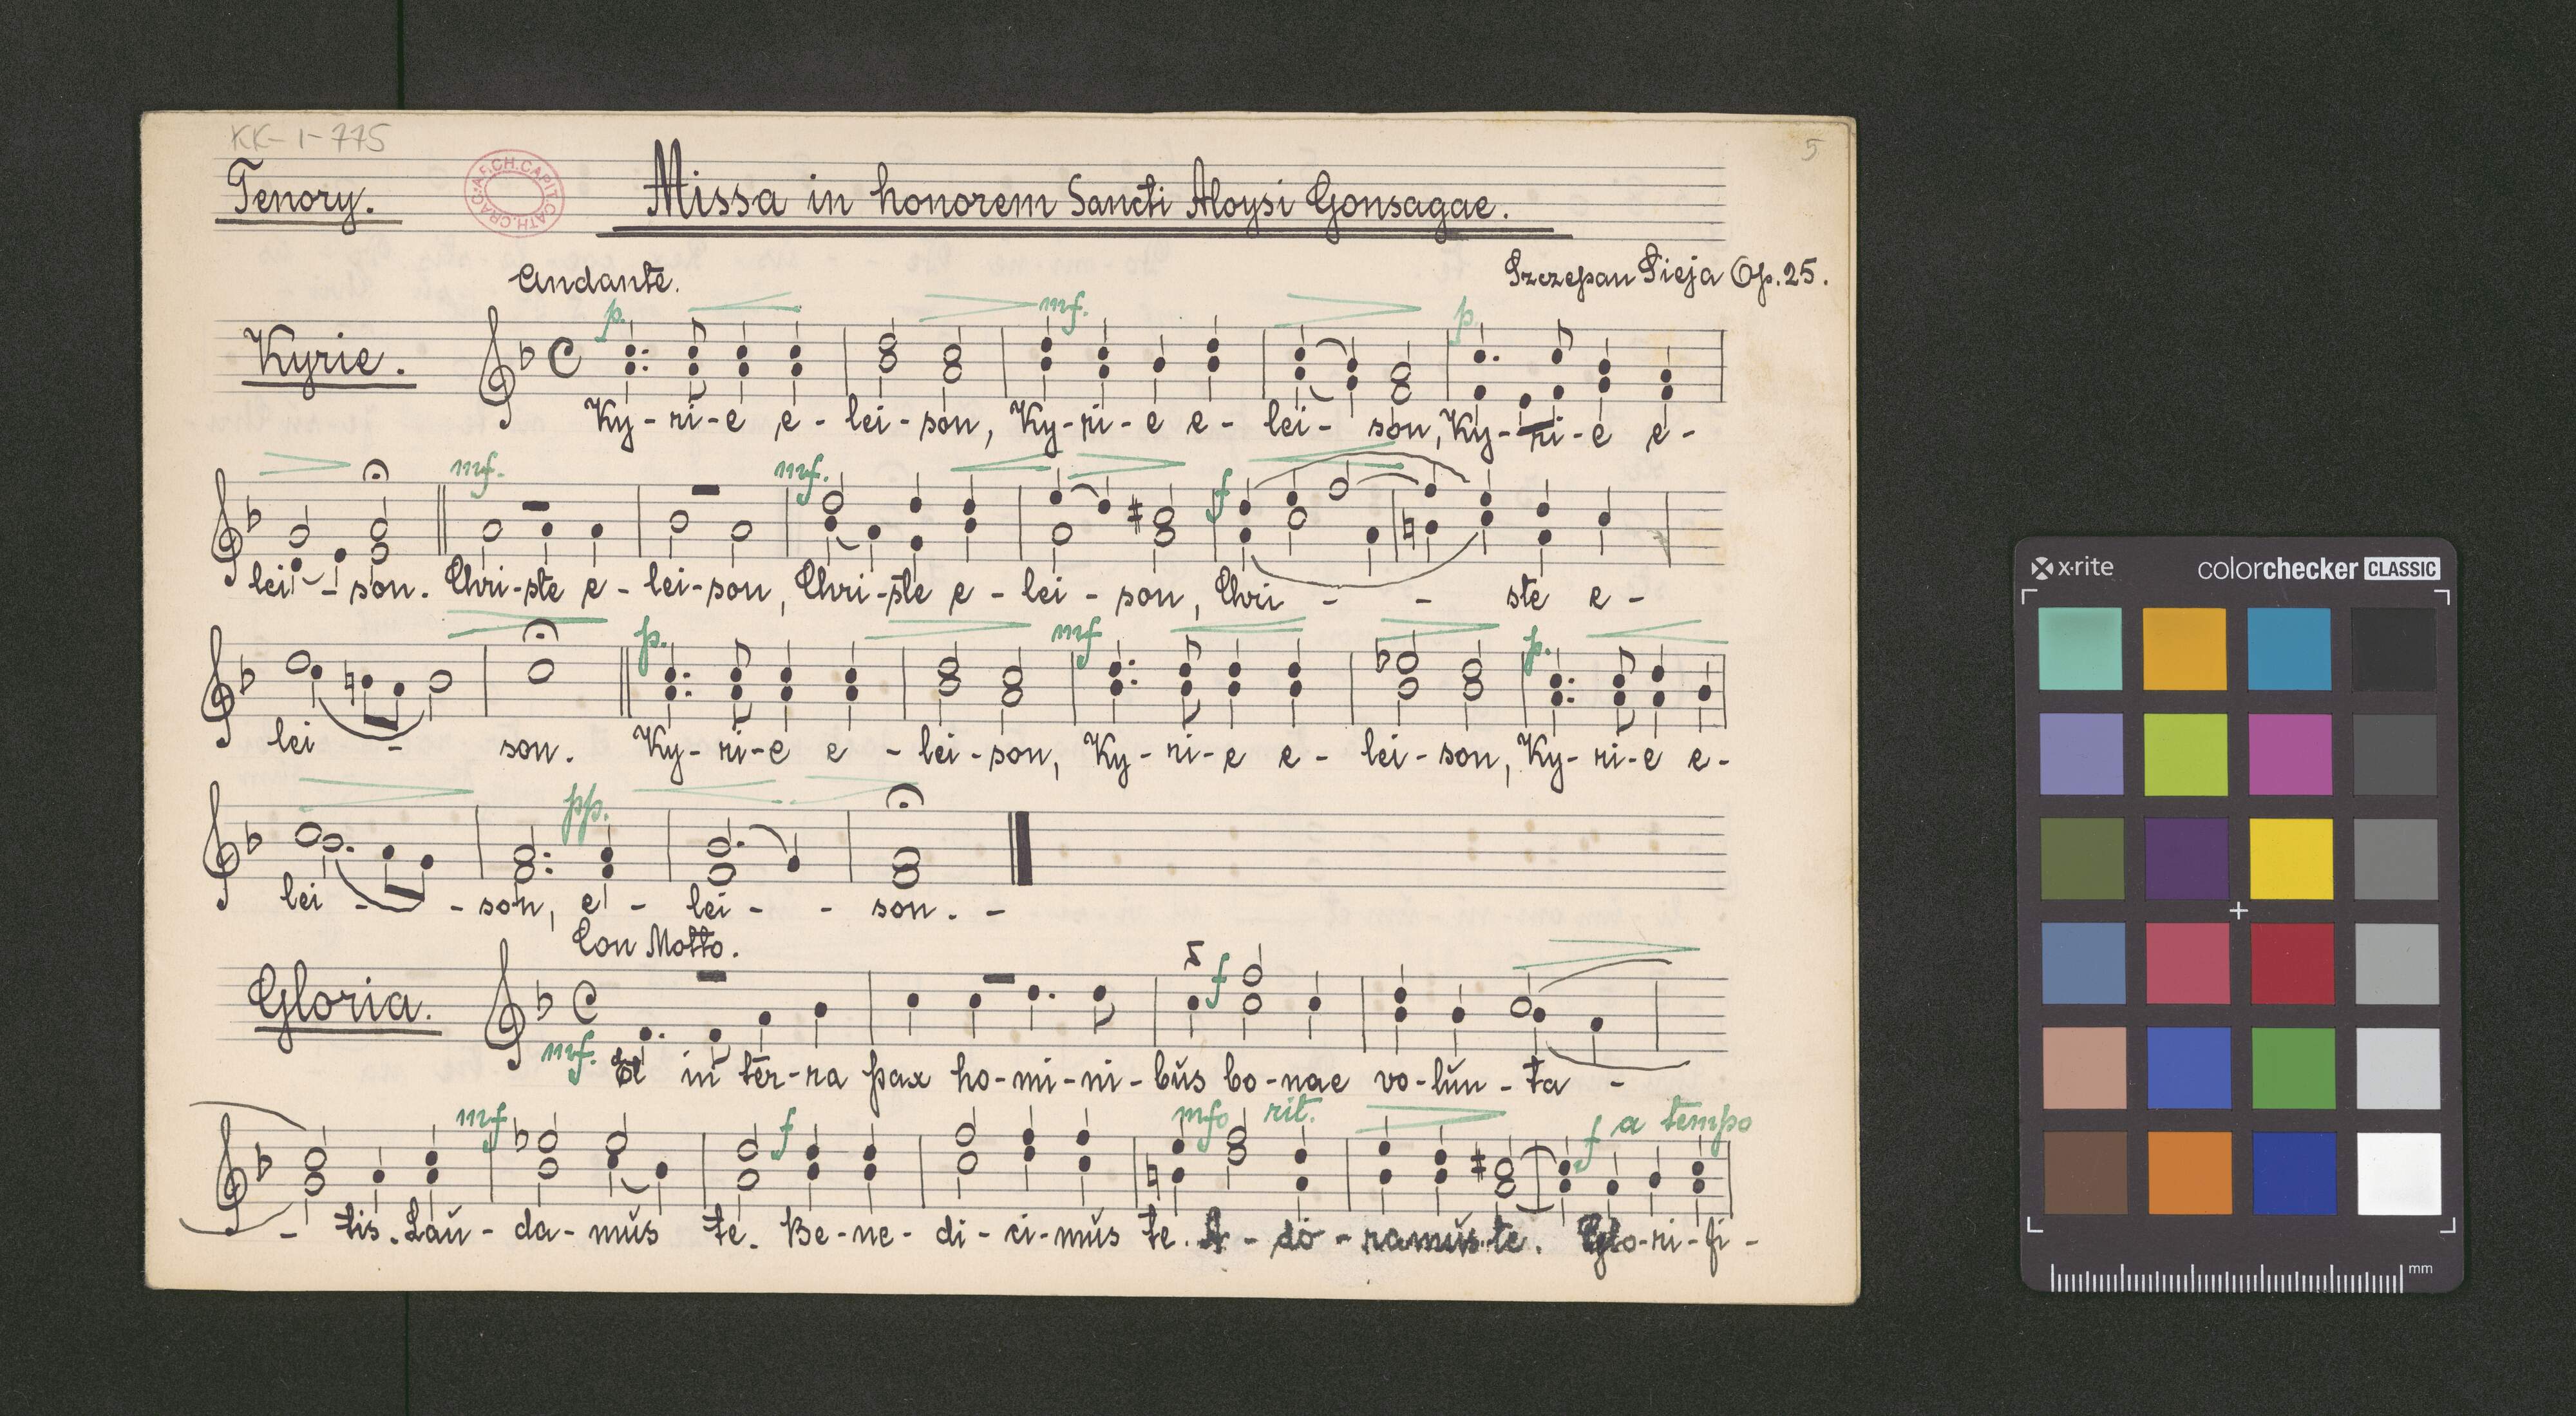 KK-I-775
5
Tenory.
A.F.CH.CAPIT.CATH.CRAC.
Missa in honorem Sancti Aloysi Gonsagae.
Szczepan Sieja Op. 25.
Andante.
p. mf. p
Kyrie.
Ky-ri-e e-lei-son, Ky-ri-e e-lei-son, Ky-ri-e e-
mf. mf. f
lei-son. Chri-ste e-lei-son, Chri-ste e-lei-son, Chri - - ste e-
p. mf p.
lei - son. Ky-ri-e e-lei-son, Ky-ri-e e-lei-son, Ky-ri-e e-
pp.
lei - - son, e - lei - - son. -
Con Motto.
f
Gloria.
mf.
Et in ter-ra pax ho-mi-ni-bŭs bo-nae vo-lŭn-ta -
mf f mfo rit. f a tempo
- tis. Laŭ-da-mŭs te. Be-ne-di-ci-mŭs te. A-do-ramŭs te. Glo-ri-fi-
x-rite
colorchecker CLASSIC
mm